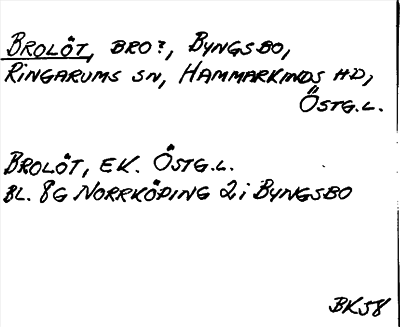 BROLÖT, BRO?, BYNGSBO,
RINGARUMS SN, HAMMARKINDS HD,
ÖSTG.L.
BROLÖT, EK. ÖSTG.L.
BL. 8G NORRKÖPING 2i BYNGSBO
BK58